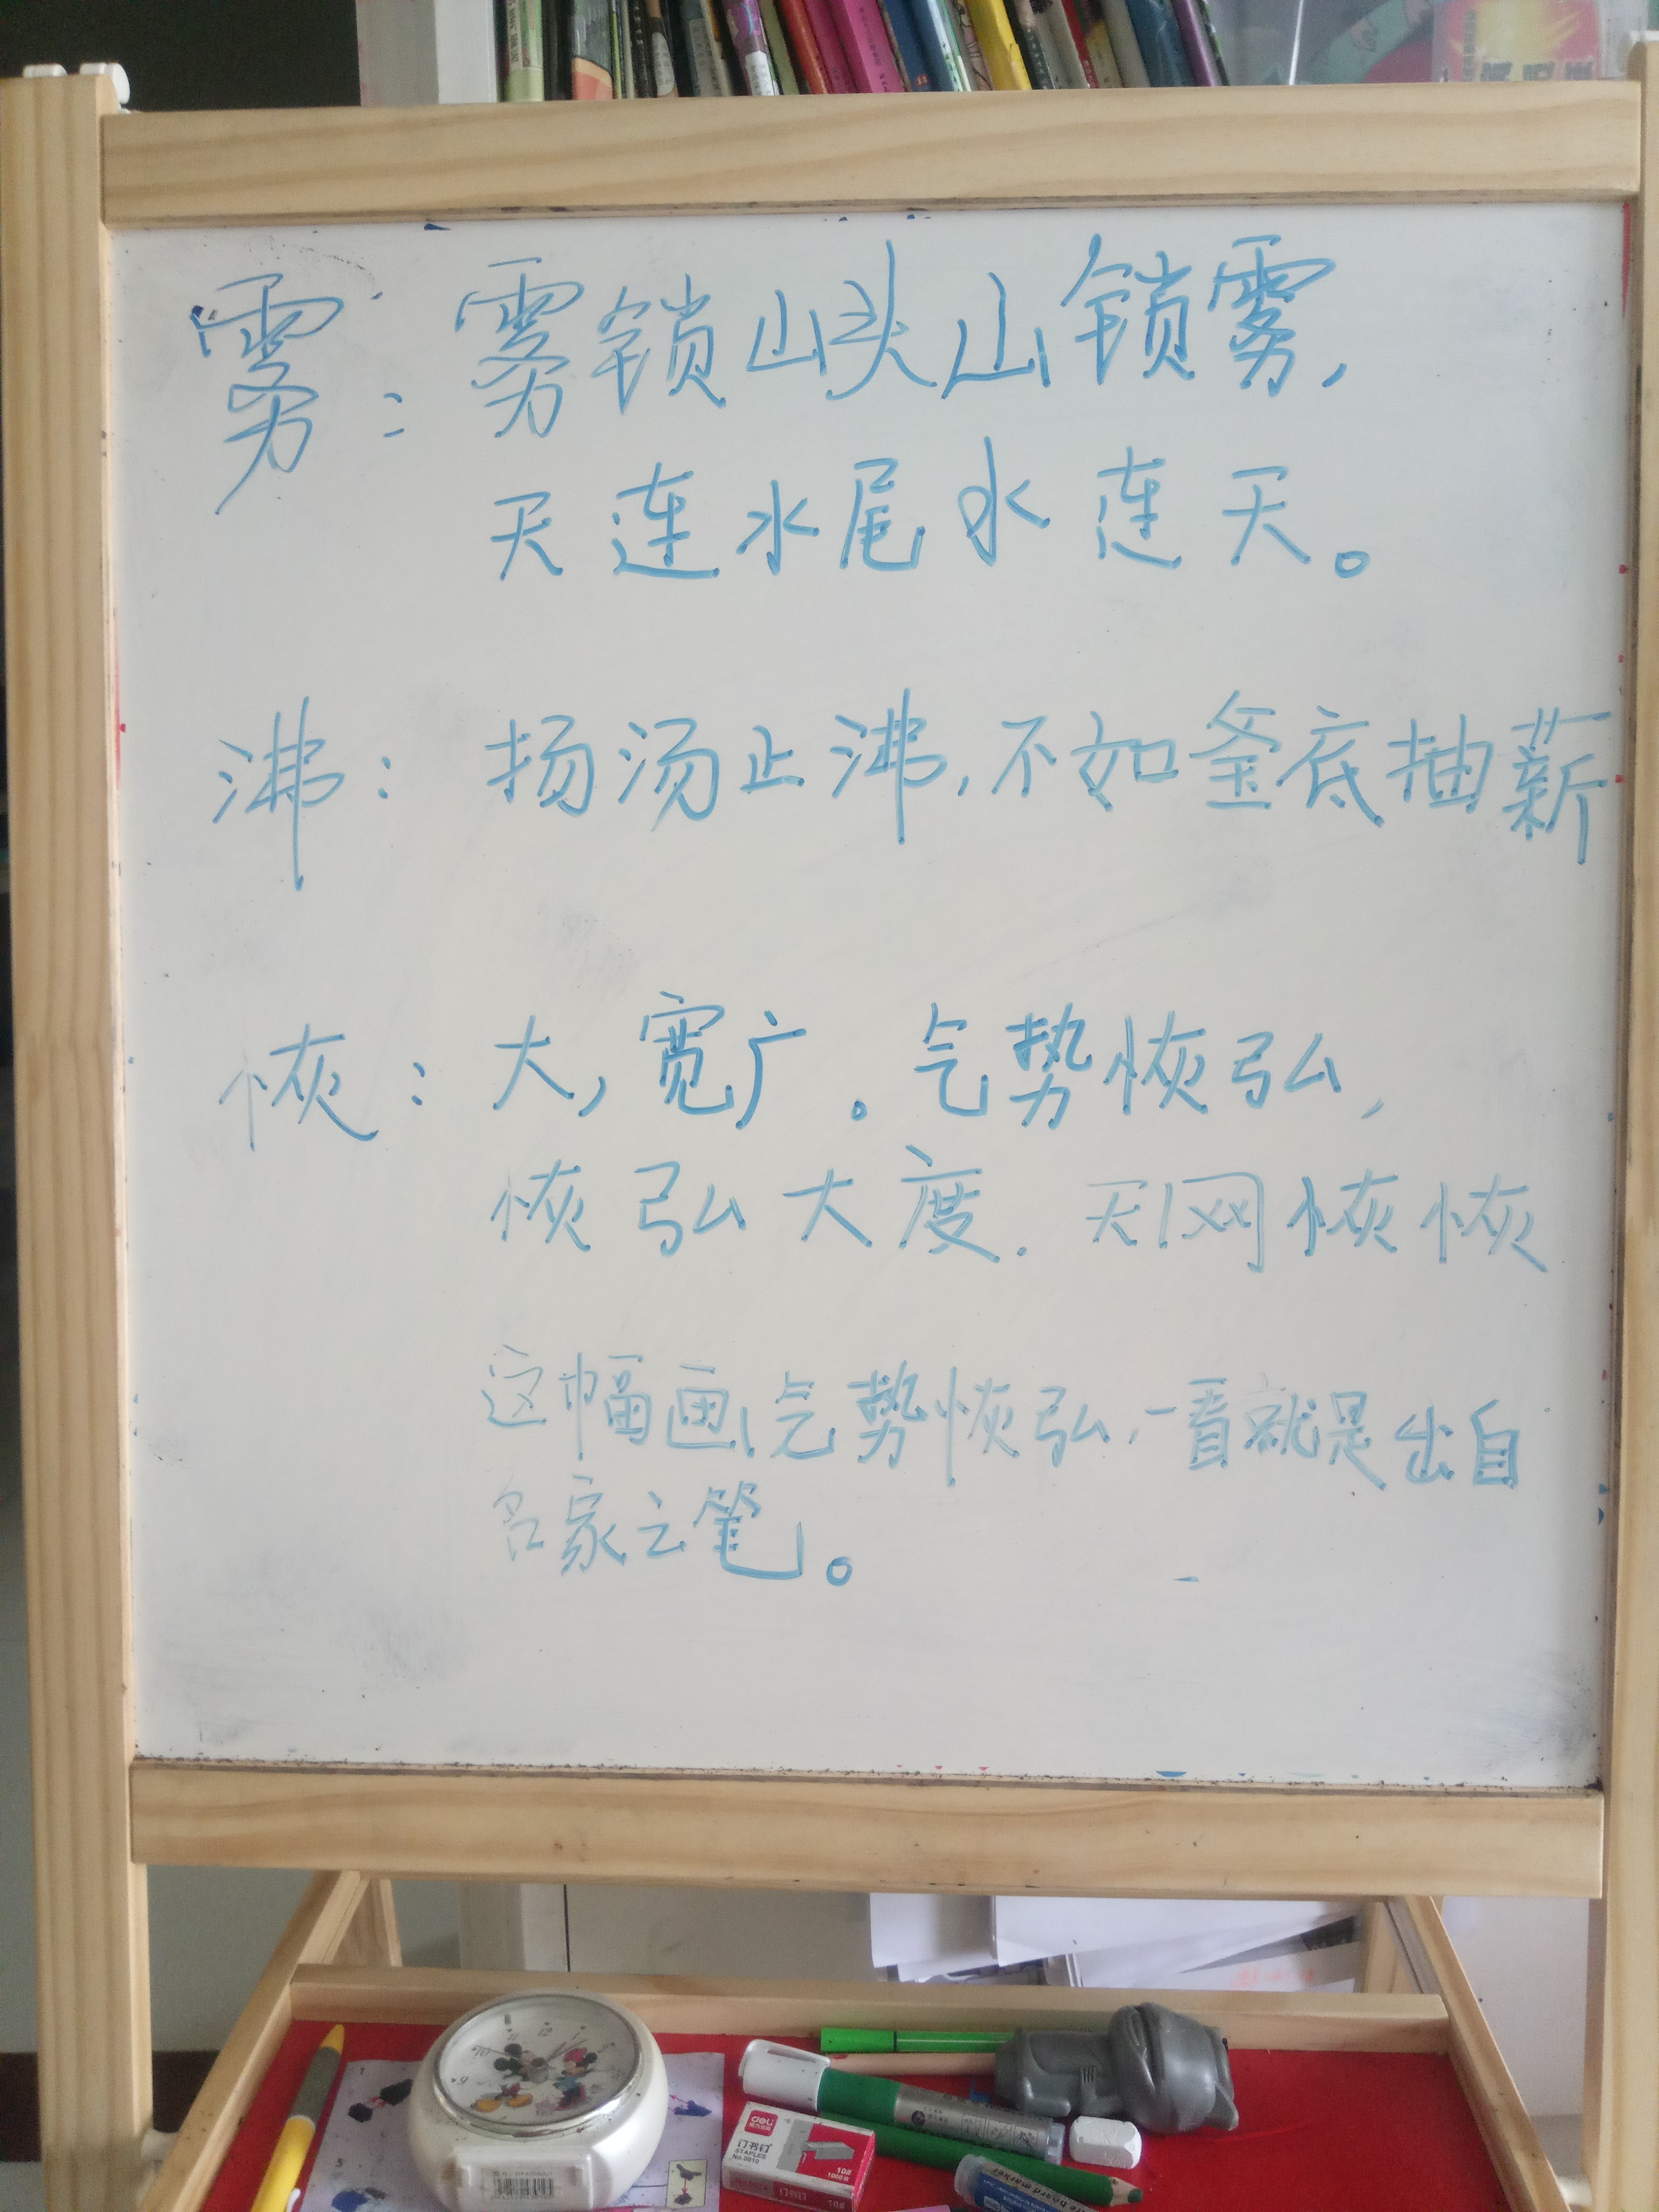 雾：雾锁山头山锁雾，
天连水尾水连天。
沸：扬汤止沸，不如釜底抽薪
恢：大，宽广。气势恢弘，
恢弘大度．天网恢恢
这幅画气势恢弘，一看就是出自
名家之笔。
deli
订书钉
STAPLES
No.0010